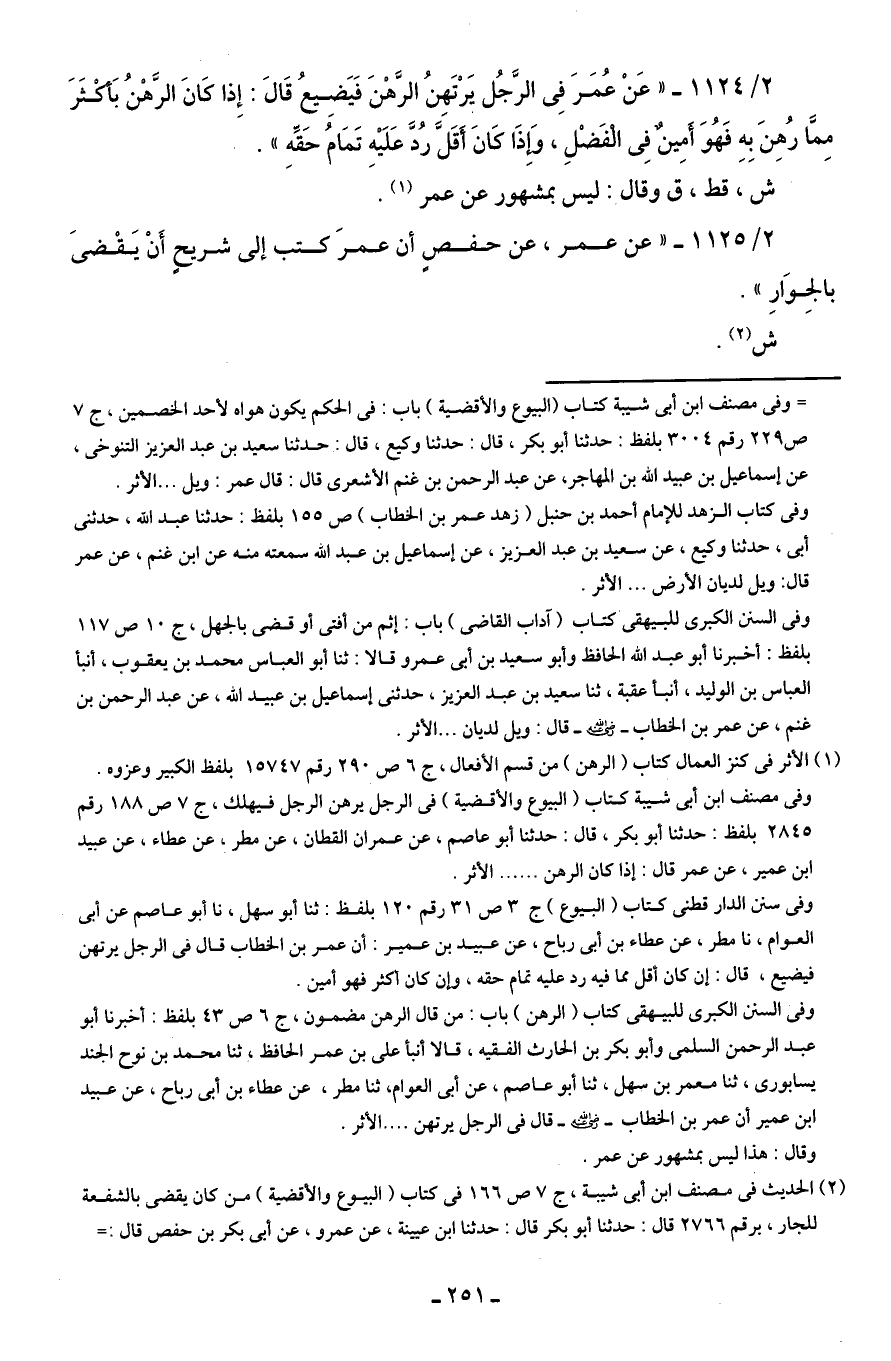 ٢/ ١١٢٤ ـ « عَنْ عُمَرَ فِى الرَّجُلِ يَرْتَهِنُ الرَّهْنَ فَيَضِيعُ قَالَ : إِذَا كَانَ الرَّهْنُ بَأكْثَرَ
مِمَّا رُهِنَ بِهِ فَهُوَ أَمِينٌ فِى الْفَضْلِ ، وَإِذَا كَانَ أَقَلَّ رُدَّ عَلَيْهِ تَمَامُ حَقِّهِ » .
ش ، قط ، ق وقال : ليس بمشهور عن عمر (١) .
٢/ ١١٢٥ ـ « عن عمر ، عن حفصٍ أن عمرَ كتب إلى شريحٍ أَنْ يَقْضىَ
بالجِوَارِ » .
ش(٢) .
= وفى مصنف ابن أبى شيبة كتاب (البيوع والأقضية ) باب : فى الحكم يكون هواه لأحد الخصمين ، ج ٧
ص٢٢٩ رقم ٣٠٠٤ بلفظ : حدثنا أبو بكر ، قال : حدثنا وكيع ، قال : حدثنا سعيد بن عبد العزيز التنوخى ،
عن إسماعيل بن عبيد الله بن المهاجر، عن عبد الرحمن بن غنم الأشعرى قال : قال عمر : ويل ...الأثر .
وفى كتاب الزهد للإمام أحمد بن حنبل ( زهد عمر بن الخطاب ) ص ١٥٥ بلفظ : حدثنا عبد الله ، حدثنى
أبى ، حدثنا وكيع ، عن سعيد بن عبد العزيز ، عن إسماعيل بن عبد الله سمعته منه عن ابن غنم ، عن عمر
قال: ويل لديان الأرض ... الأثر .
وفى السنن الكبرى للبيهقى كتاب ( آداب القاضى ) باب : إثم من أفتى أو قضى بالجهل ، ج ١٠ ص ١١٧
بلفظ : أخبرنا أبو عبد الله الحافظ وأبو سعيد بن أبى عمرو قالا : ثنا أبو العباس محمد بن يعقوب ، أنبأ
العباس بن الوليد ، أنبأ عقبة ، ثنا سعيد بن عبد العزيز ، حدثنى إسماعيل بن عبيد الله ، عن عبد الرحمن بن
غنم ، عن عمر بن الخطاب ـ رضي الله عنه ـ قال : ويل لديان ...الأثر .
(١) الأثر فى كنز العمال كتاب ( الرهن ) من قسم الأفعال ، ج ٦ ص ٢٩٠ رقم ١٥٧٤٧ بلفظ الكبير وعزوه .
وفى مصنف ابن أبى شيبة كتاب ( البيوع والأقضية ) فى الرجل يرهن الرجل فيهلك ، ج ٧ ص ١٨٨ رقم
٢٨٤٥ بلفظ : حدثنا أبو بكر ، قال : حدثنا أبو عاصم ، عن عمران القطان ، عن مطر ، عن عطاء ، عن عبيد
ابن عمير ، عن عمر قال : إذا كان الرهن ...... الأثر .
وفى سنن الدار قطنى كتاب ( البيوع ) ج ٣ ص ٣١ رقم ١٢٠ بلفظ : ثنا أبو سهل ، نا أبو عاصم عن أبى
العوام ، نا مطر ، عن عطاء بن أبى رباح ، عن عبيد بن عمير : أن عمر بن الخطاب قال فى الرجل يرتهن
فيضيع ، قال : إن كان أقل مما فيه رد عليه تمام حقه ، وإن كان أكثر فهو أمين .
وفى السنن الكبرى للبيهقى كتاب ( الرهن ) باب : من قال الرهن مضمون ، ج ٦ ص ٤٣ بلفظ : أخبرنا أبو
عبد الرحمن السلمى وأبو بكر بن الحارث الفقيه ، قالا أنبأ على بن عمر الحافظ ، ثنا محمد بن نوح الجند
يسابورى ، ثنا معمر بن سهل ، ثنا أبو عاصم ، عن أبى العوام، ثنا مطر ، عن عطاء بن أبى رباح ، عن عبيد
ابن عمير أن عمر بن الخطاب ـ رضي الله عنه ـ قال فى الرجل يرتهن ....الأثر .
وقال : هذا ليس بمشهور عن عمر .
(٢) الحديث فى مصنف ابن أبى شيبة ، ج ٧ ص ١٦٦ فى كتاب ( البيوع والأقضية ) من كان يقضى بالشفعة
للجار ، برقم ٢٧٦٦ قال : حدثنا أبو بكر قال : حدثنا ابن عيينة ، عن عمرو ، عن أبى بكر بن حفص قال :=
ـ ٢٥١ ـ